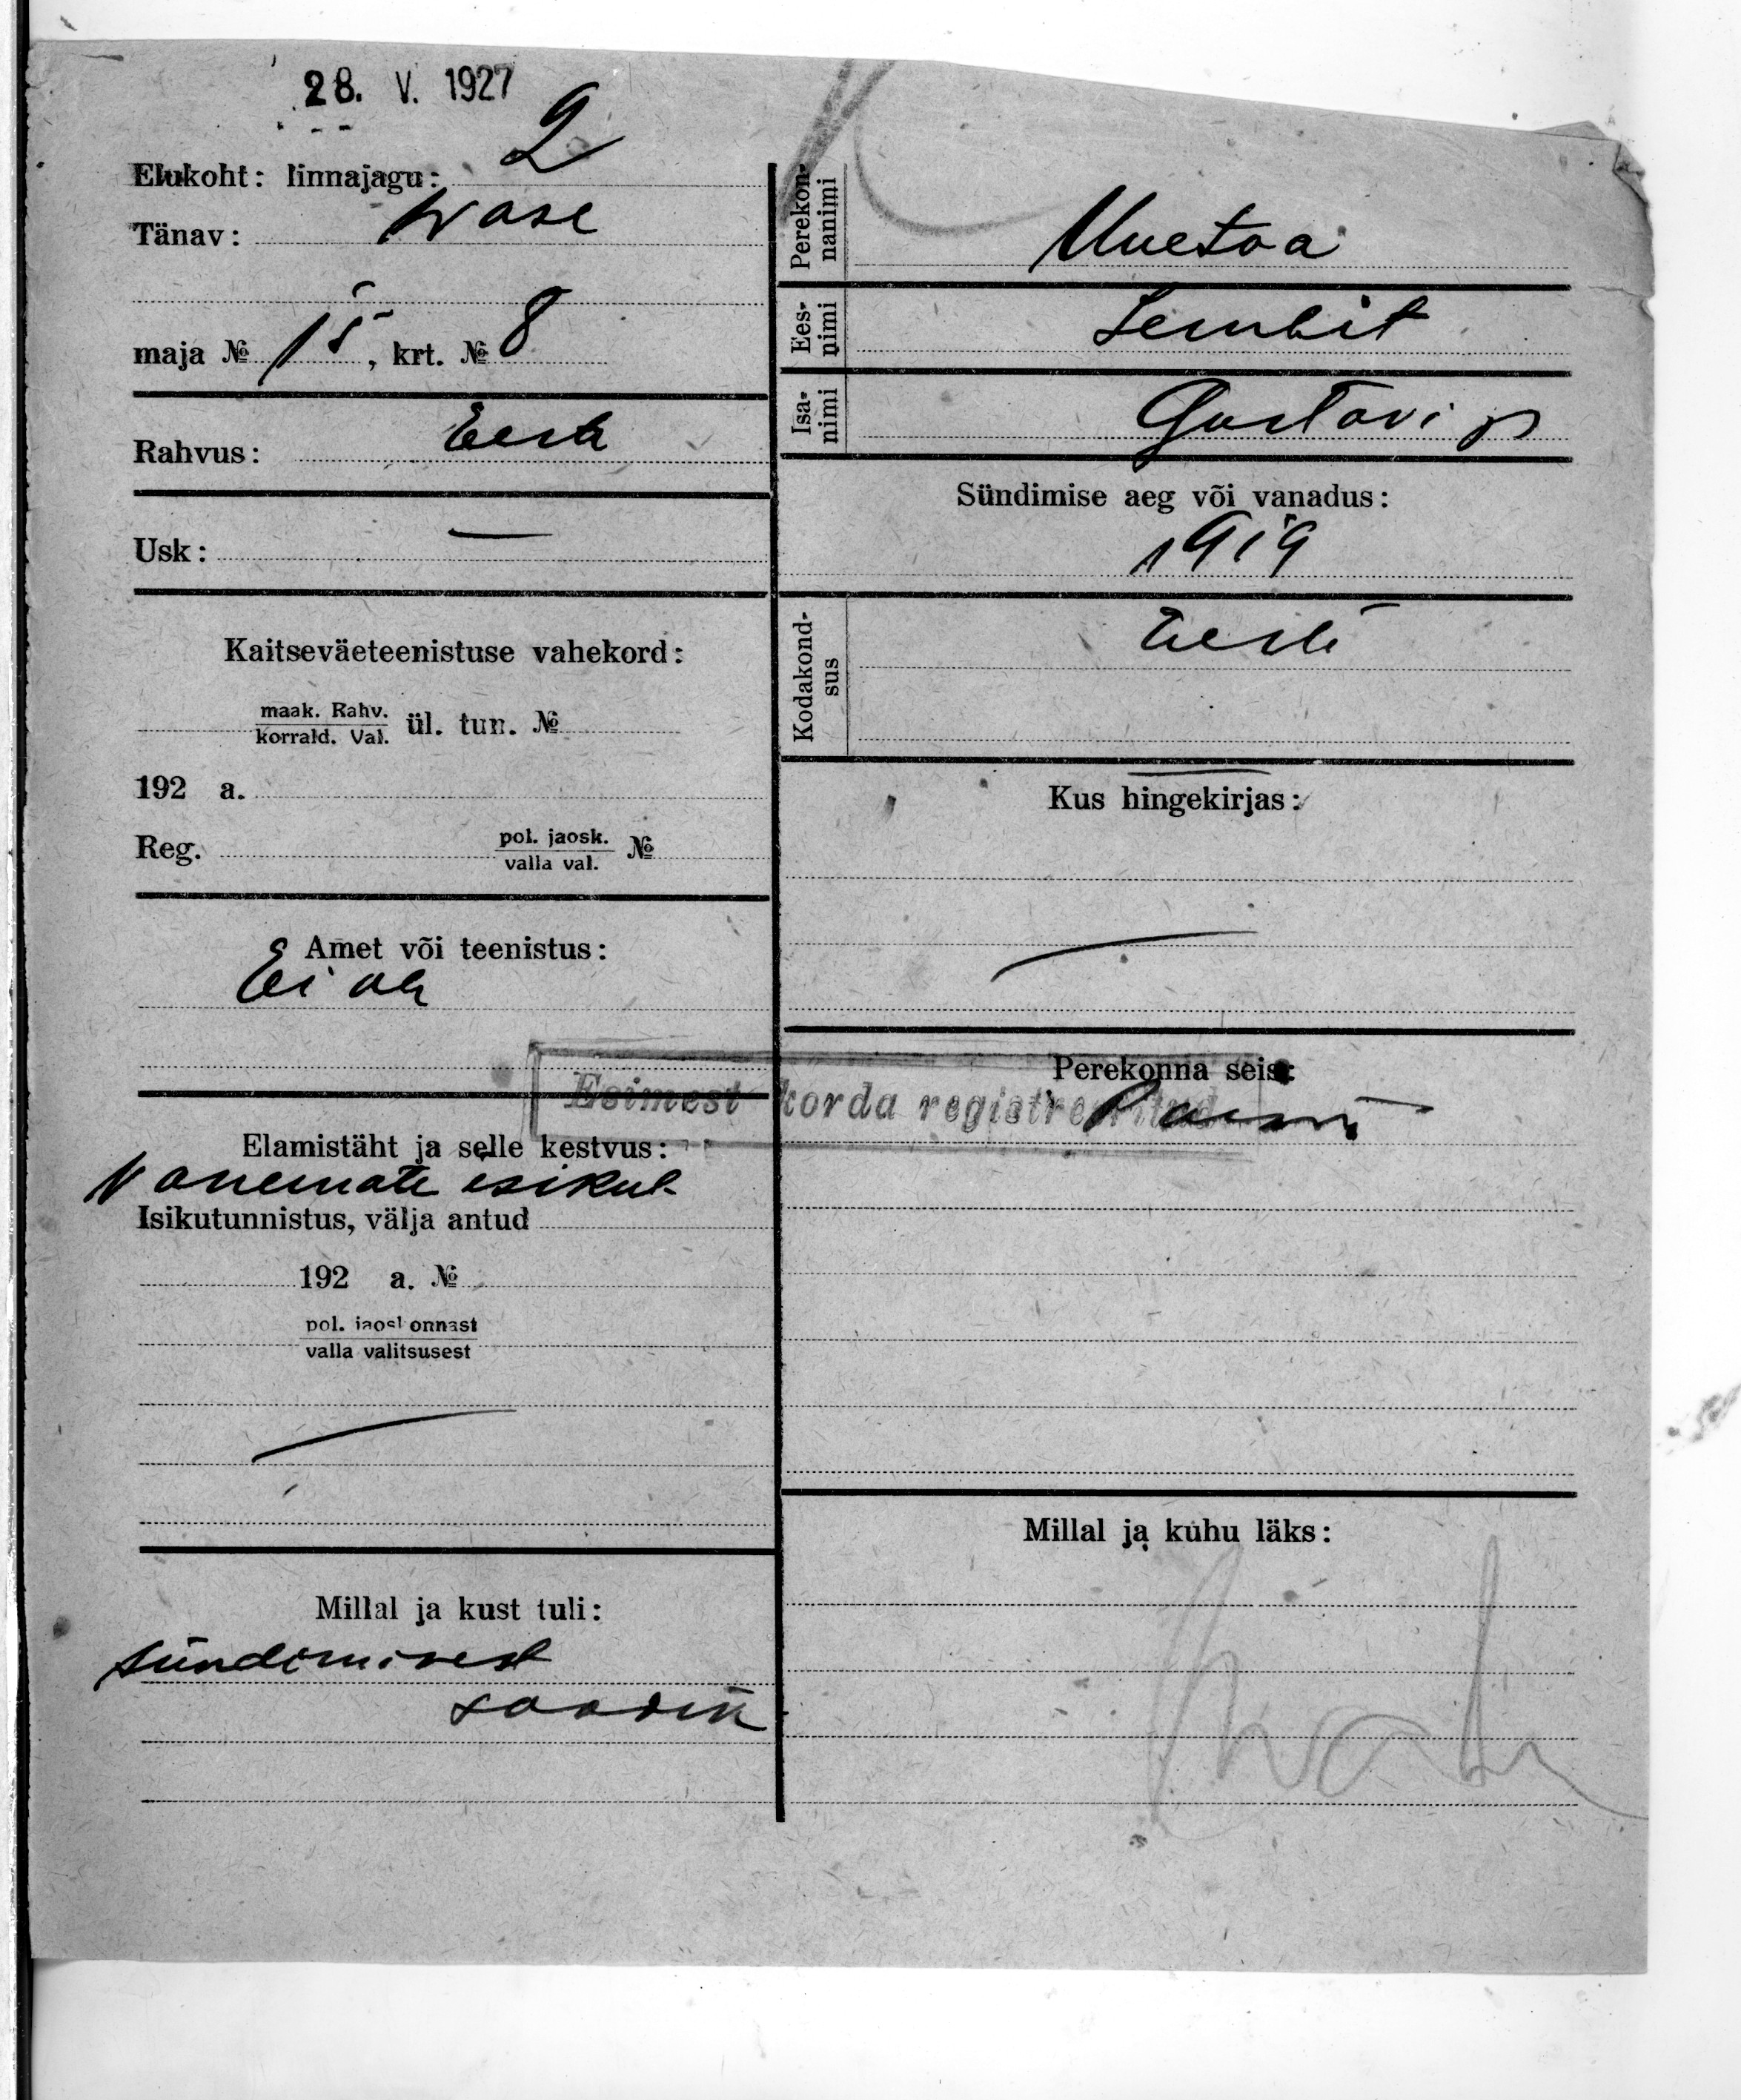 28. V. 1927
Elukoht: linnajagu: 2
Tänav: Wase
maja № 15, krt. № 8
Rahvus: Eesti
Usk: —
Kaitseväeteenistuse vahekord:
maak. Rahv.
korrald. Val. ül. tun. №
192 a.
Reg. pol. jaosk. №
valla val.
Amet või teenistus:
Ei ole
Elamistäht ja selle kestvus:
Vanemate isikut
Isikutunnistus, välja antud
192 a. №
pol. jaoskonnast
valla valitsusest
Millal ja kust tuli:
sündimisest
saadik
Perekon-
nanimi Uuetoa
Ees-
nimi Lembit
Isa-
nimi Gustavi p
Sündimise aeg või vanadus:
1919
Kodakond-
sus Eesti
Kus hingekirjas:
—
Perekonna seis:
Esimest korda registreeritud
Millal ja kuhu läks: